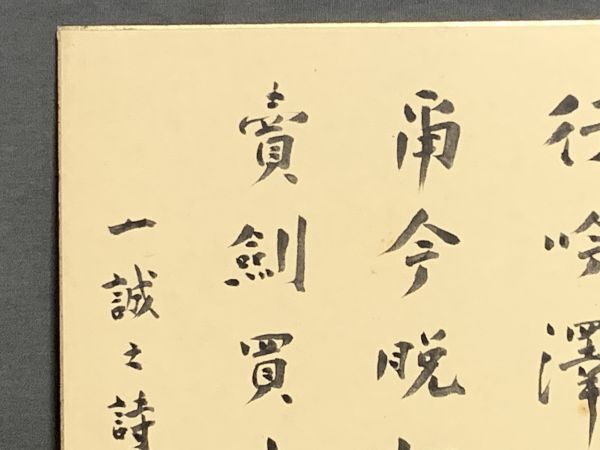 行吟澤
今脱
賣劍買
一誠之詩